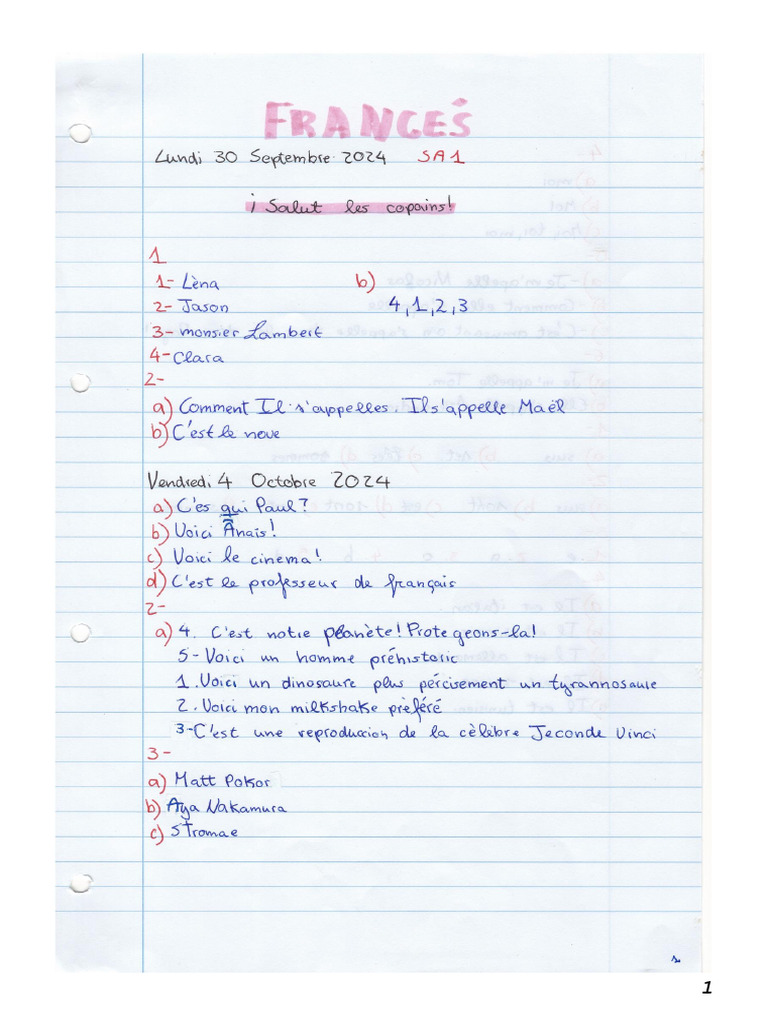 FRANCEŚ
Lundi 30 Septembre 2024 SA1
¡ Salut les copains!
1
1- Lèna b)
2- Jason 4,1,2,3
3- monsier Lambert
4- Clara
2-
a) Comment Il s'appelles. Il s'appelle Maël
b) C'est le nove
Vendredi 4 Octobre 2024
a) C'es qui Paul?
b) Voici Anaïs!
c) Voici le cinema!
d) C'est le professeur de français
2-
a) 4. C'est notre planète! Protegeons-la!
5- Voici un homme préhistoric
1. Voici un dinosaure plus pércisement un tyrannosaure
2. Voici mon milkshake prèféré
3- C'est une reproduccion de la cèlèbre Jeconde Vinci
3-
a) Matt Pokor
b) Aya Nakamura
c) Stromae
1
1